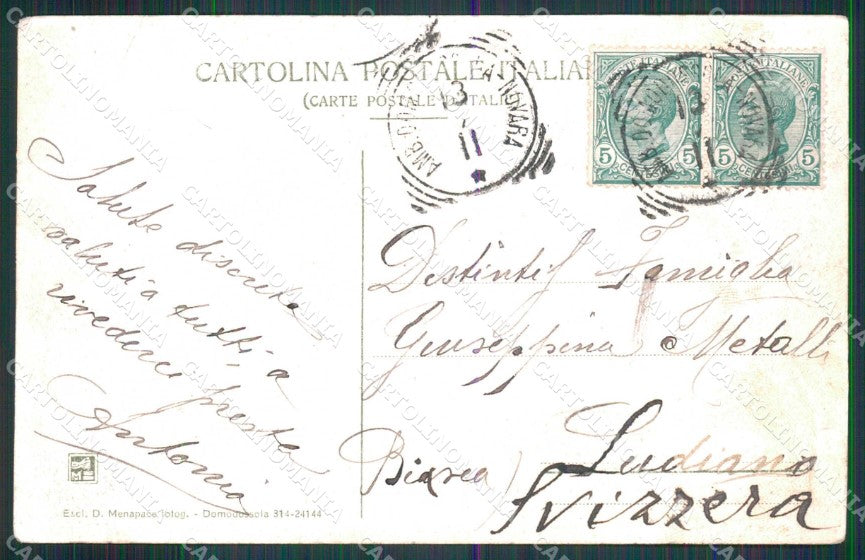 CARTOLINA POSTALE ITALIANA
(CARTE POSTALE D'ITALIE)
AMB. DOMODOSSOLA NOVARA
13
11
POSTE ITALIANE
5 CENT. 5
POSTE ITALIANE
5 CENT. 5
Salute discreta
saluti a tutti, a
rivederci presto
Antonia
Distinti Famiglia
Giuseppina Metalli
(Biasca) Ludiano
Svizzera
Escl. D. Menapace fotog. - Domodossola 314-24144
CARTOLINOMANIA